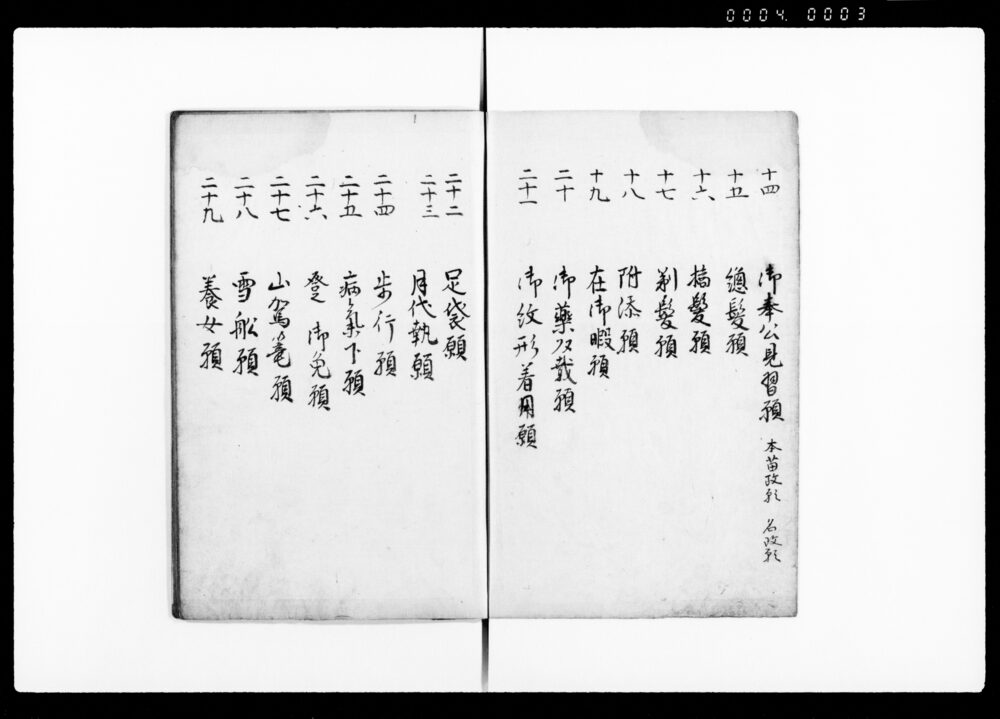 0004. 0003
十四 御奉公見習願 本苗改願 名改願
十五 總髮願
十六 摘髮願
十七 剃髮願
十八 附添願
十九 在御暇願
二十 御藥頂戴願
二十一 御紋形着用願
二十二 足袋願
二十三 月代執願
二十四 歩行願
二十五 病氣下願
二十六 登御免願
二十七 山駕籠願
二十八 雪舩願
二十九 養女願